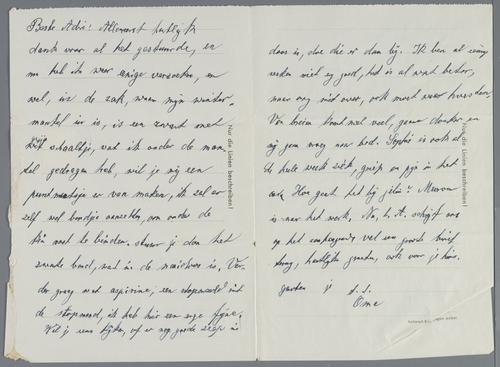 Beste Adri! Allereerst hartelijk
dank voor al het gestuurde, en
nu heb ik weer enige verzoeken, n.
wel, in de zak, waar mijn winter-
mantel in is, is een zwart met
wit sjaaltje, wat ik onder de man-
tel gedragen heb, wil je mij een
puntmutsje er van maken, ik zal er
zelf wel bandje aanzetten, om onder de
kin vast te binden, stuur je dan het
zwarte band, wat in de naaidoos is, Ver-
der graag wat aspirine, een stopnaald uit
de stopmand, ik heb hier een erge fijne.
Wil je eens kijken, of er nog goede zeep in
doos is, doe die er dan bij. Ik ben al enige
weken niet erg goed, het is al wat beter,
maar nog niet over, ook moet weer hoesten
Van lezen komt niet veel, gauw donker en
wij gaan vroeg naar bed. Sophie is ook al
de hele week ziek, griep en pijn in het
Hoe gaat het bij jullie?
is naar het werk, Nu, L. A. schrijf ons
op het vel een grote brief
terug, hartelijke groeten, ook voor je
je
Ome
Nur die Linien beschreiben!
Nur die Linien beschreiben!